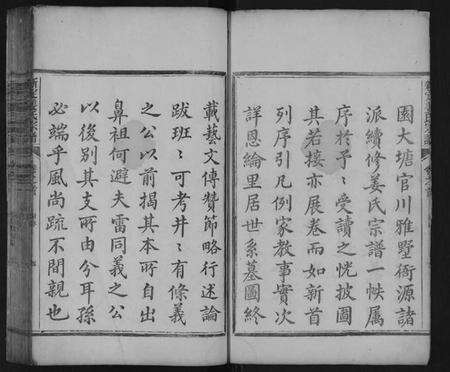 園大塘官川雅墅衕源諸
派續修姜氏宗譜一帙属
序於予〻受讀之恍披圖
其若核亦展卷而如新首
列序引凡例家教事實次
詳恩綸里居世系墓圖終
載藝文傳贊節略行述論
跋班〻可考井〻有條義
之公以前揭其本所自出
鼻祖何避夫雷同義之公
以後别其支所由分耳孫
必端乎風尚疏不間親也